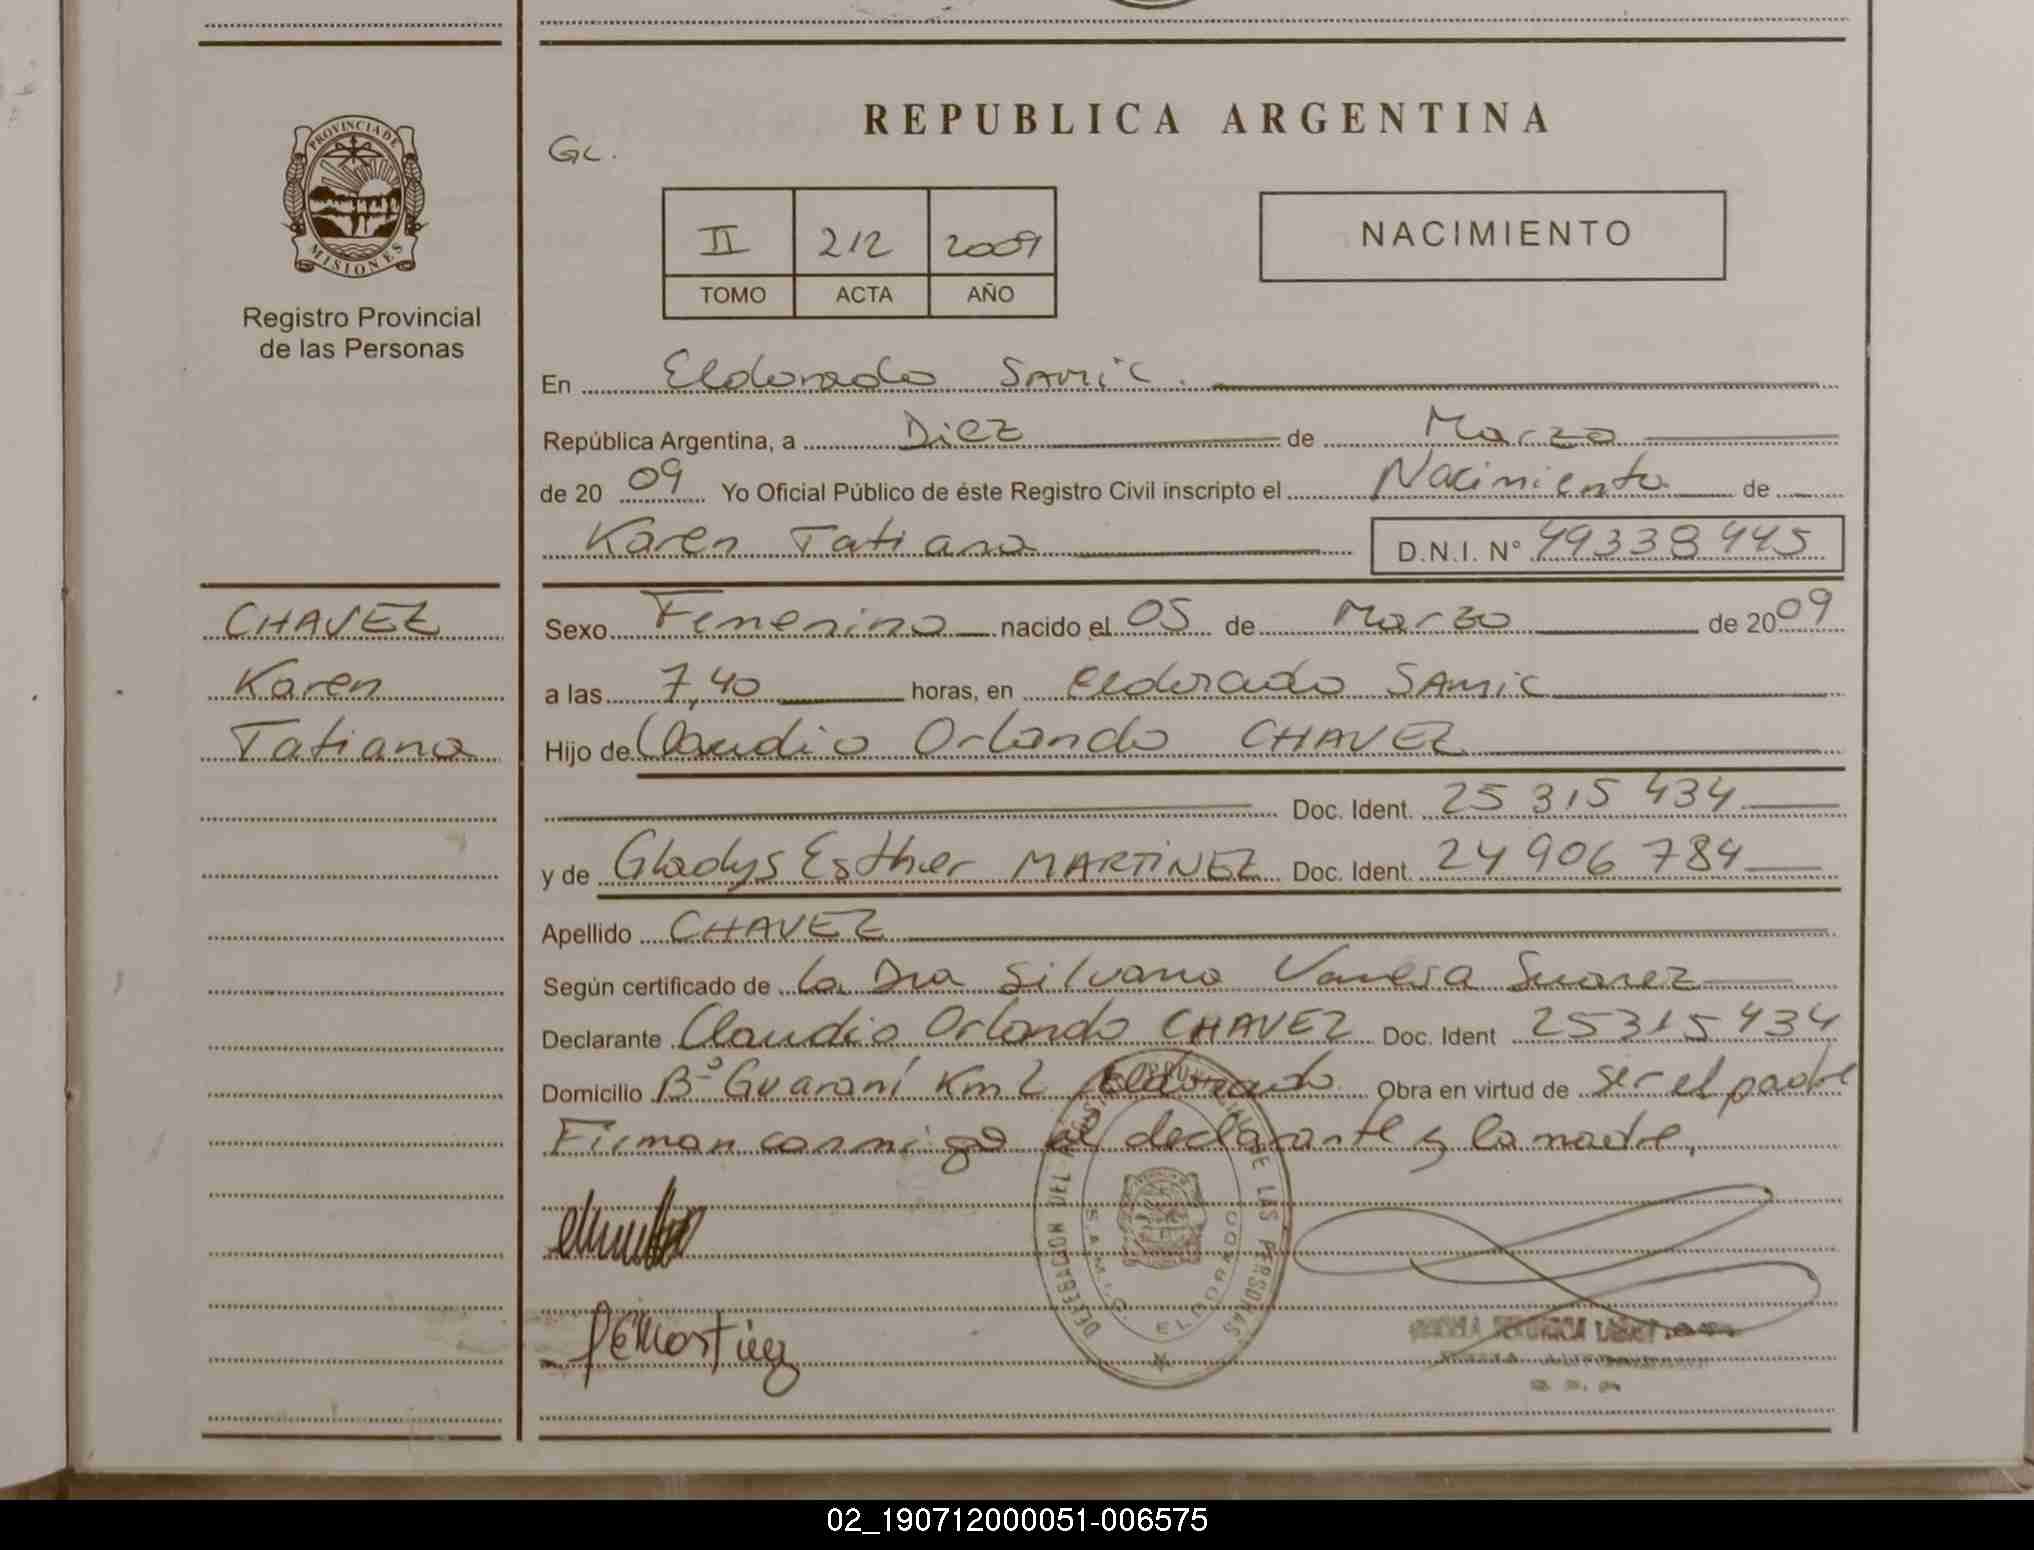 REPUBLICA ARGENTINA
GC.
PROVINCIA DE
MISIONES
Registro Provincial
de las Personas
II 212 2009
TOMO ACTA AÑO
NACIMIENTO
En Eldorado SAMIC.
República Argentina, a Diez de Marzo
de 20 09 Yo Oficial Público de éste Registro Civil inscripto el Nacimiento de
Karen Tatiana D.N.I. N° 49338445
CHAVEZ
Karen
Tatiana
Sexo Femenino nacido el 05 de Marzo de 2009
a las 7,40 horas, en Eldorado SAMIC
Hijo de Claudio Orlando CHAVEZ
Doc. Ident. 25 315 434
y de Gladys Esther MARTINEZ Doc. Ident. 24 906 784
Apellido CHAVEZ
Según certificado de la Dra Silvana Vanesa Suarez
Declarante Claudio Orlando CHAVEZ Doc. Ident 25315434
Domicilio B° Guaraní Km 2 Eldorado. Obra en virtud de ser el padre
Firman conmigo el declarante y la madre,
DELEGACION DEL REGISTRO PROVINCIAL DE LAS PERSONAS
S.A.M.I.C. ELDORADO
02_190712000051-006575